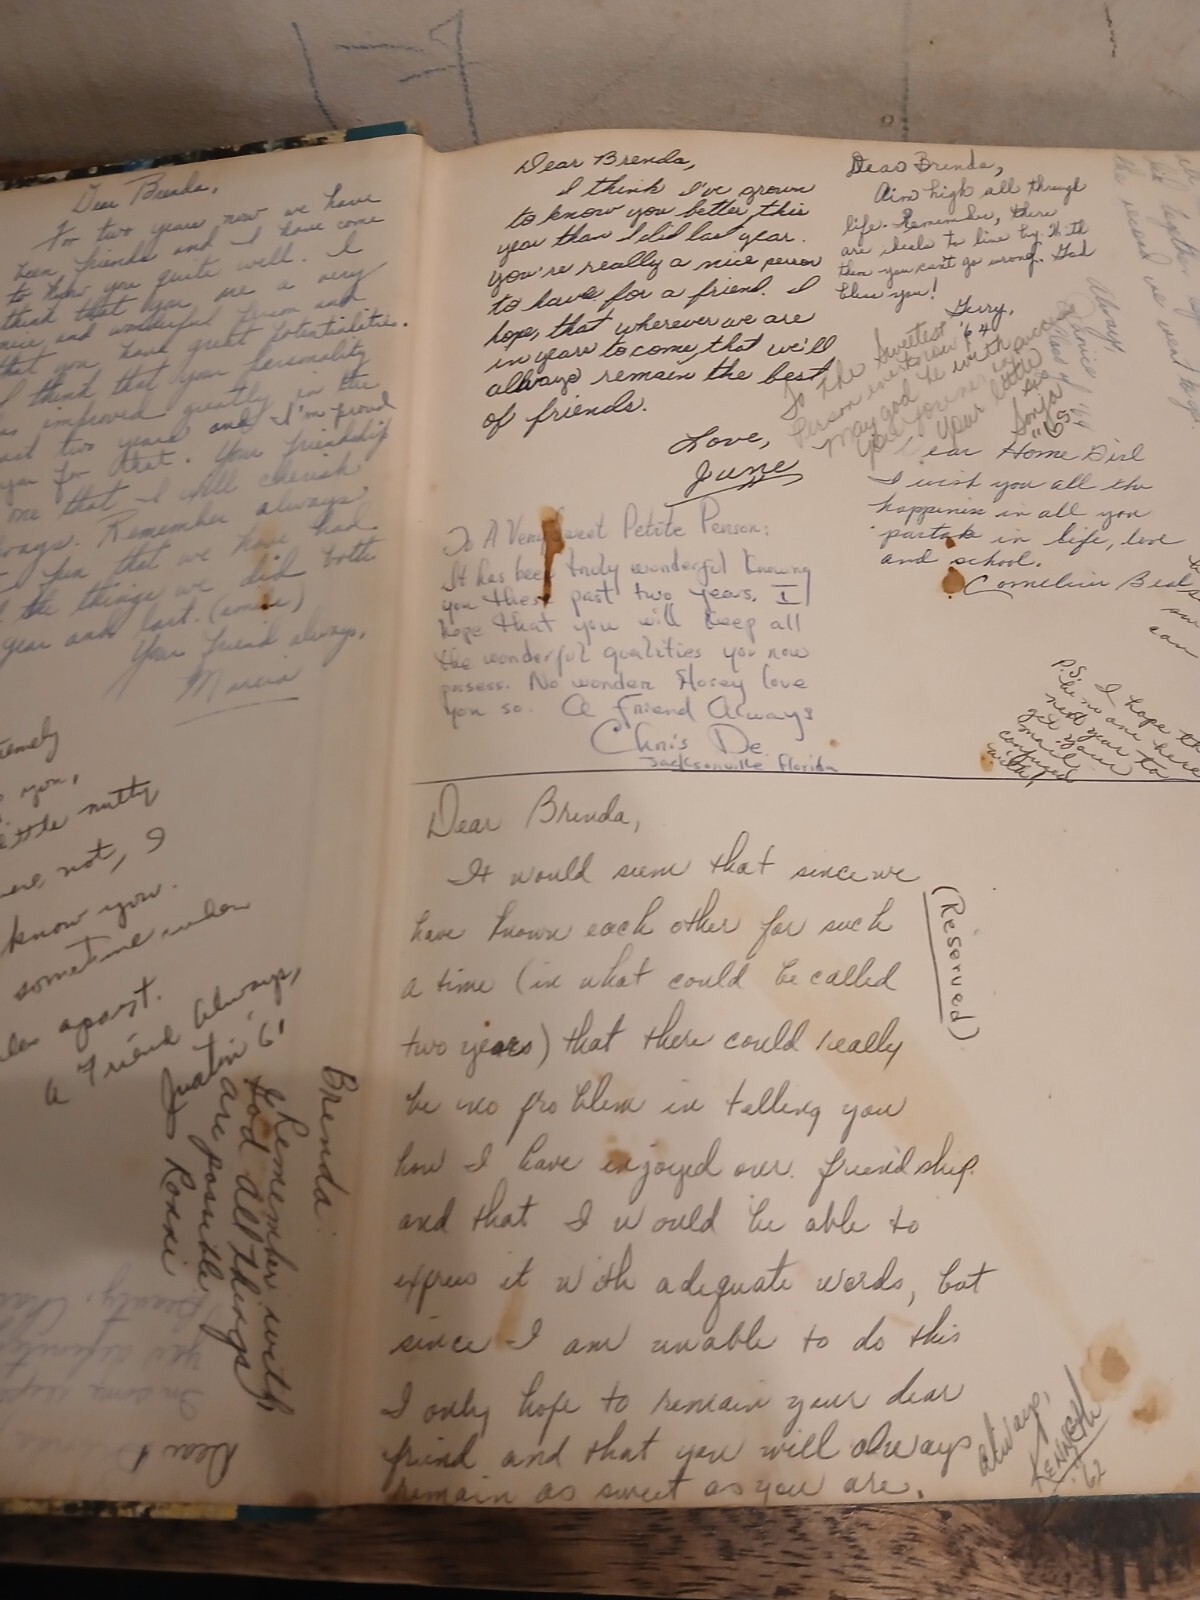 Dear Brenda,
For two years now we have
been friends and I have come
to know you quite well. I
think that you are a very
nice and wonderful person and
that you have great potentialities.
I think that your personality
has improved greatly in the
past two years and I'm proud
you for that. Your friendship
one that I will cherish
always. Remember always
fun that we have had
the things we did both
year and last. (smile)
Your friend always,
Marcia
you,
little nutty
are not, I
know you.
sometime when
apart.
a Friend Always,
Justin 6'
Brenda:
Remember with
God all things
are possible
Ronni
Dear
Dear Brenda,
I think I've grown
to know you better this
year than I did last year.
You're really a nice person
to have for a friend. I
hope, that wherever we are
in years to come, that we'll
always remain the best
of friends.
Love,
June
Dear Brenda,
Aim high all through
life. Remember, there
are ideals to live by. With
them you can't go wrong. God
bless you!
Gerry,
'64
To the Sweetest
Person ever to know
May god be with
you forever
Your little
Sonja
"65"
Always,
Janice
Class of '64
ear Home Girl
I wish you all the
happiness in all you
partake in life, love
and school.
Cornelius Beal
To A Very Sweet Petite Person:
It has been truly wonderful knowing
you these past two years. I
hope that you will keep all
the wonderful qualities you now
possess. No wonder Horey love
you so. A Friend Always
Chris De.
Jacksonville Florida
P.S. I hope th
no one here
next year
get your
mail
confused
with
Dear Brenda,
It would seem that since we
have known each other for such
a time (in what could be called
two years) that there could really
be no problem in telling you
how I have enjoyed our friendship
and that I would be able to
express it with adequate words, but
since I am unable to do this
I only hope to remain your dear
friend and that you will always
remain as sweet as you are.
(Reserved)
always,
Kenneth
'62